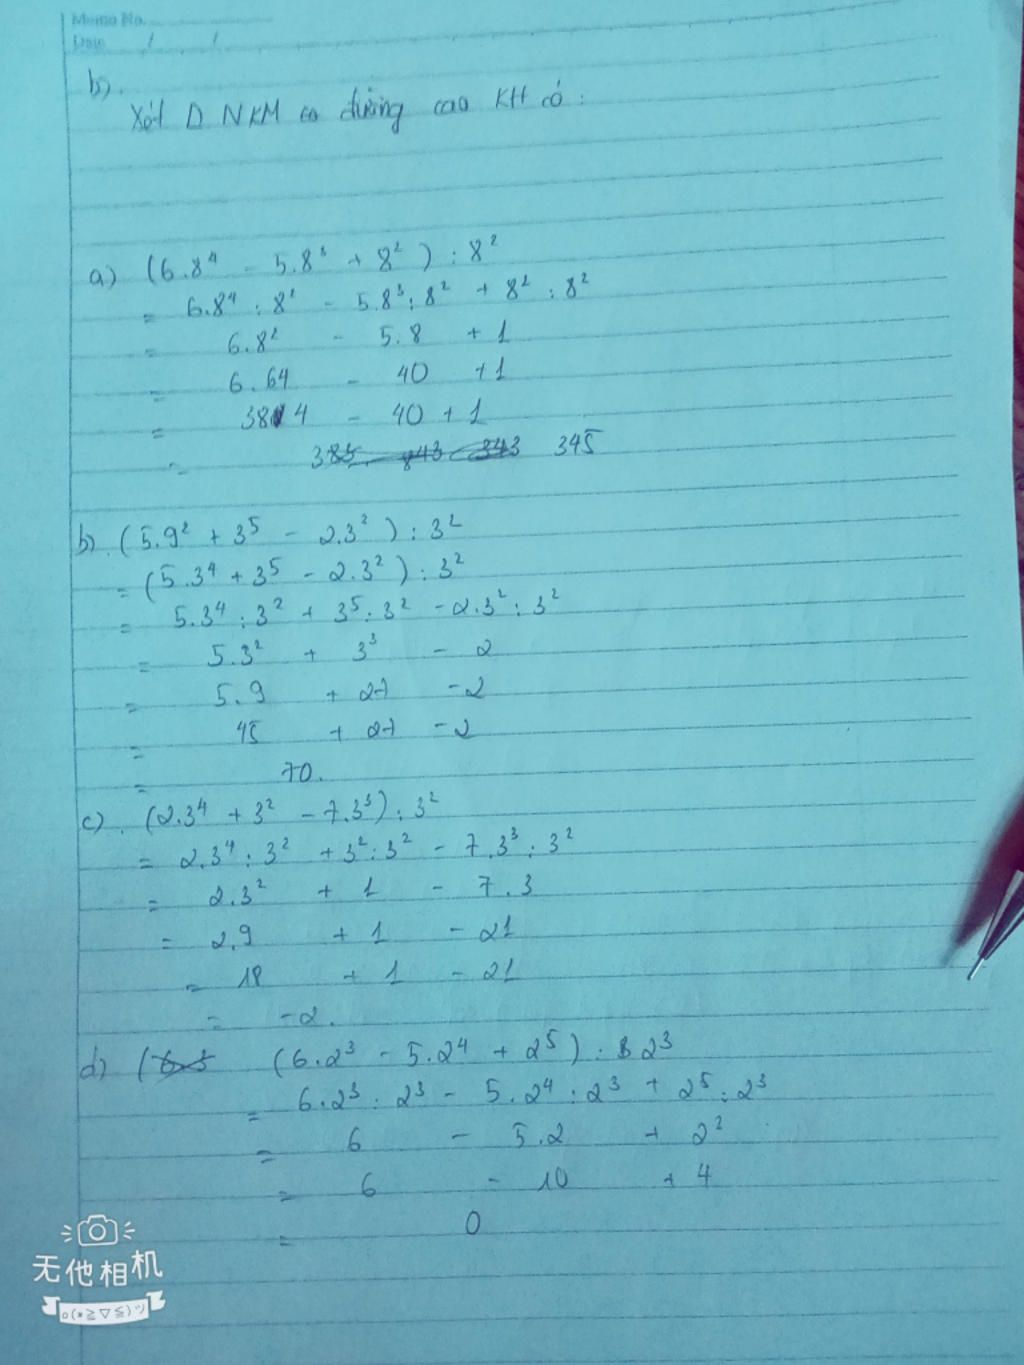 Memo No.
Date / /
b).
Xét Δ NKM có đường cao KH có :
a) (6.8⁴ - 5.8³ + 8²) : 8²
= 6.8⁴ : 8² - 5.8³ : 8² + 8² : 8²
= 6.8² - 5.8 + 1
= 6.64 - 40 + 1
= 384 - 40 + 1
= 345
b). (5.9² + 3⁵ - 2.3²) : 3²
= (5.3⁴ + 3⁵ - 2.3²) : 3²
= 5.3⁴ : 3² + 3⁵ : 3² - 2.3² : 3²
= 5.3² + 3³ - 2
= 5.9 + 27 - 2
= 45 + 27 - 2
= 70.
c). (2.3⁴ + 3² - 7.3³) : 3²
= 2.3⁴ : 3² + 3² : 3² - 7.3³ : 3²
= 2.3² + 1 - 7.3
= 2.9 + 1 - 21
= 18 + 1 - 21
= -2.
d) (6.2³ - 5.2⁴ + 2⁵) : 2³
= 6.2³ : 2³ - 5.2⁴ : 2³ + 2⁵ : 2³
= 6 - 5.2 + 2²
= 6 - 10 + 4
= 0
无他相机
o(*≧▽≦)ツ